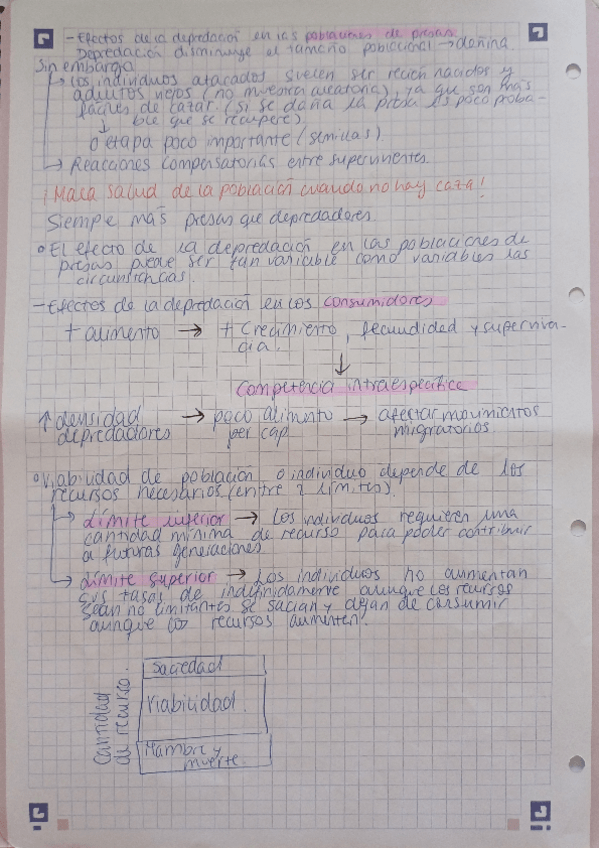 - Efectos de la depredación en las poblaciones de presas.
Depredación disminuye el tamaño poblacional → dañina.
Sin embargo
→ los individuos atacados suelen ser recién nacidos y
adultos viejos (no muestra aleatoria), ya que son más
fáciles de cazar. (si se daña la presa es poco proba-
ble que se recupere).
↓
o etapa poco importante (semillas).
→ Reacciones compensatorias entre supervivientes.
¡Mala salud de la población cuando no hay caza!
Siempre más presas que depredadores.
• El efecto de la depredación en las poblaciones de
presas puede ser tan variable como variables las
circunstancias.
- Efectos de la depredación en los consumidores
+ alimento → + Crecimiento, fecundidad y superviven-
cia.
↓
Competencia intraespecífica
↑ densidad → poco alimento → afectar movimientos
depredadores per cap. migratorios.
• Viabilidad de población o individuo depende de los
recursos necesarios (entre 2 límites).
→ Límite inferior → Los individuos requieren una
cantidad mínima de recurso para poder contribuir
a futuras generaciones.
→ Límite superior → Los individuos no aumentan
sus tasas de indefinidamente aunque los recursos
sean no limitantes se sacian y dejan de consumir
aunque los recursos aumenten.
Cantidad
de recurso.
Saciedad
Viabilidad.
Hambre y
muerte.